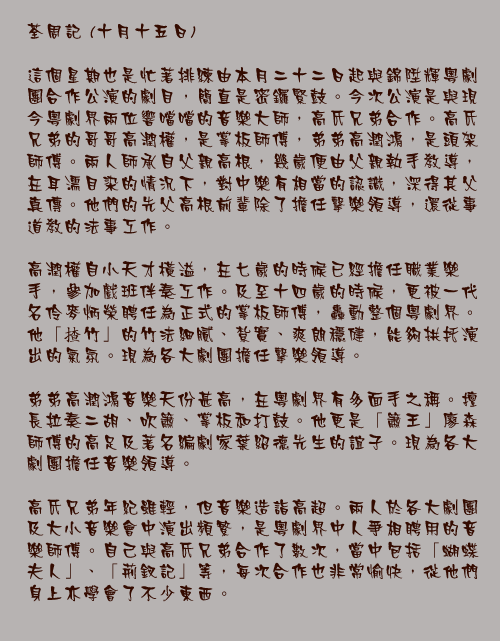 荃周記 (十月十五日)
這個星期也是忙著排練由本月二十二日起與錦陞輝粵劇
團合作公演的劇目，簡直是密鑼緊鼓。今次公演是與現
今粵劇界兩位響噹噹的音樂大師，高氏兄弟合作。高氏
兄弟的哥哥高潤權，是掌板師傅，弟弟高潤鴻，是頭架
師傅。兩人師承自父親高根，幾歲便由父親執手教導，
在耳濡目染的情況下，對中樂有相當的認識，深得其父
真傳。他們的先父高根前輩除了擔任擊樂領導，還從事
道教的法事工作。
高潤權自小天才橫溢，在七歲的時候已經擔任職業樂
手，參加戲班伴奏工作。及至十四歲的時候，更被一代
名伶麥炳榮聘任為正式的掌板師傅，轟動整個粵劇界。
他「揸竹」的竹法細膩、贊實、爽朗穩健，能夠拱托演
出的氣氛。現為各大劇團擔任擊樂領導。
弟弟高潤鴻音樂天份甚高，在粵劇界有多面手之稱。擅
長拉奏二胡、吹簫、掌板和打鼓。他更是「簫王」廖森
師傅的高足及著名編劇家葉紹德先生的誼子。現為各大
劇團擔任音樂領導。
高氏兄弟年紀雖輕，但音樂造詣高超。兩人於各大劇團
及大小音樂會中演出頻繁，是粵劇界中人爭相聘用的音
樂師傅。自己與高氏兄弟合作了數次，當中包括「蝴蝶
夫人」、「荊釵記」等，每次合作也非常愉快，從他們
身上亦學會了不少東西。